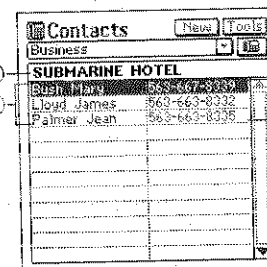 Contacts New Tools
Business
SUBMARINE HOTEL
Bush Mary
Lloyd James 563-663-8332
Palmer Jean 563-663-8335